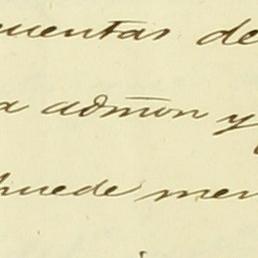 cuentas de
a admōn y
puede men